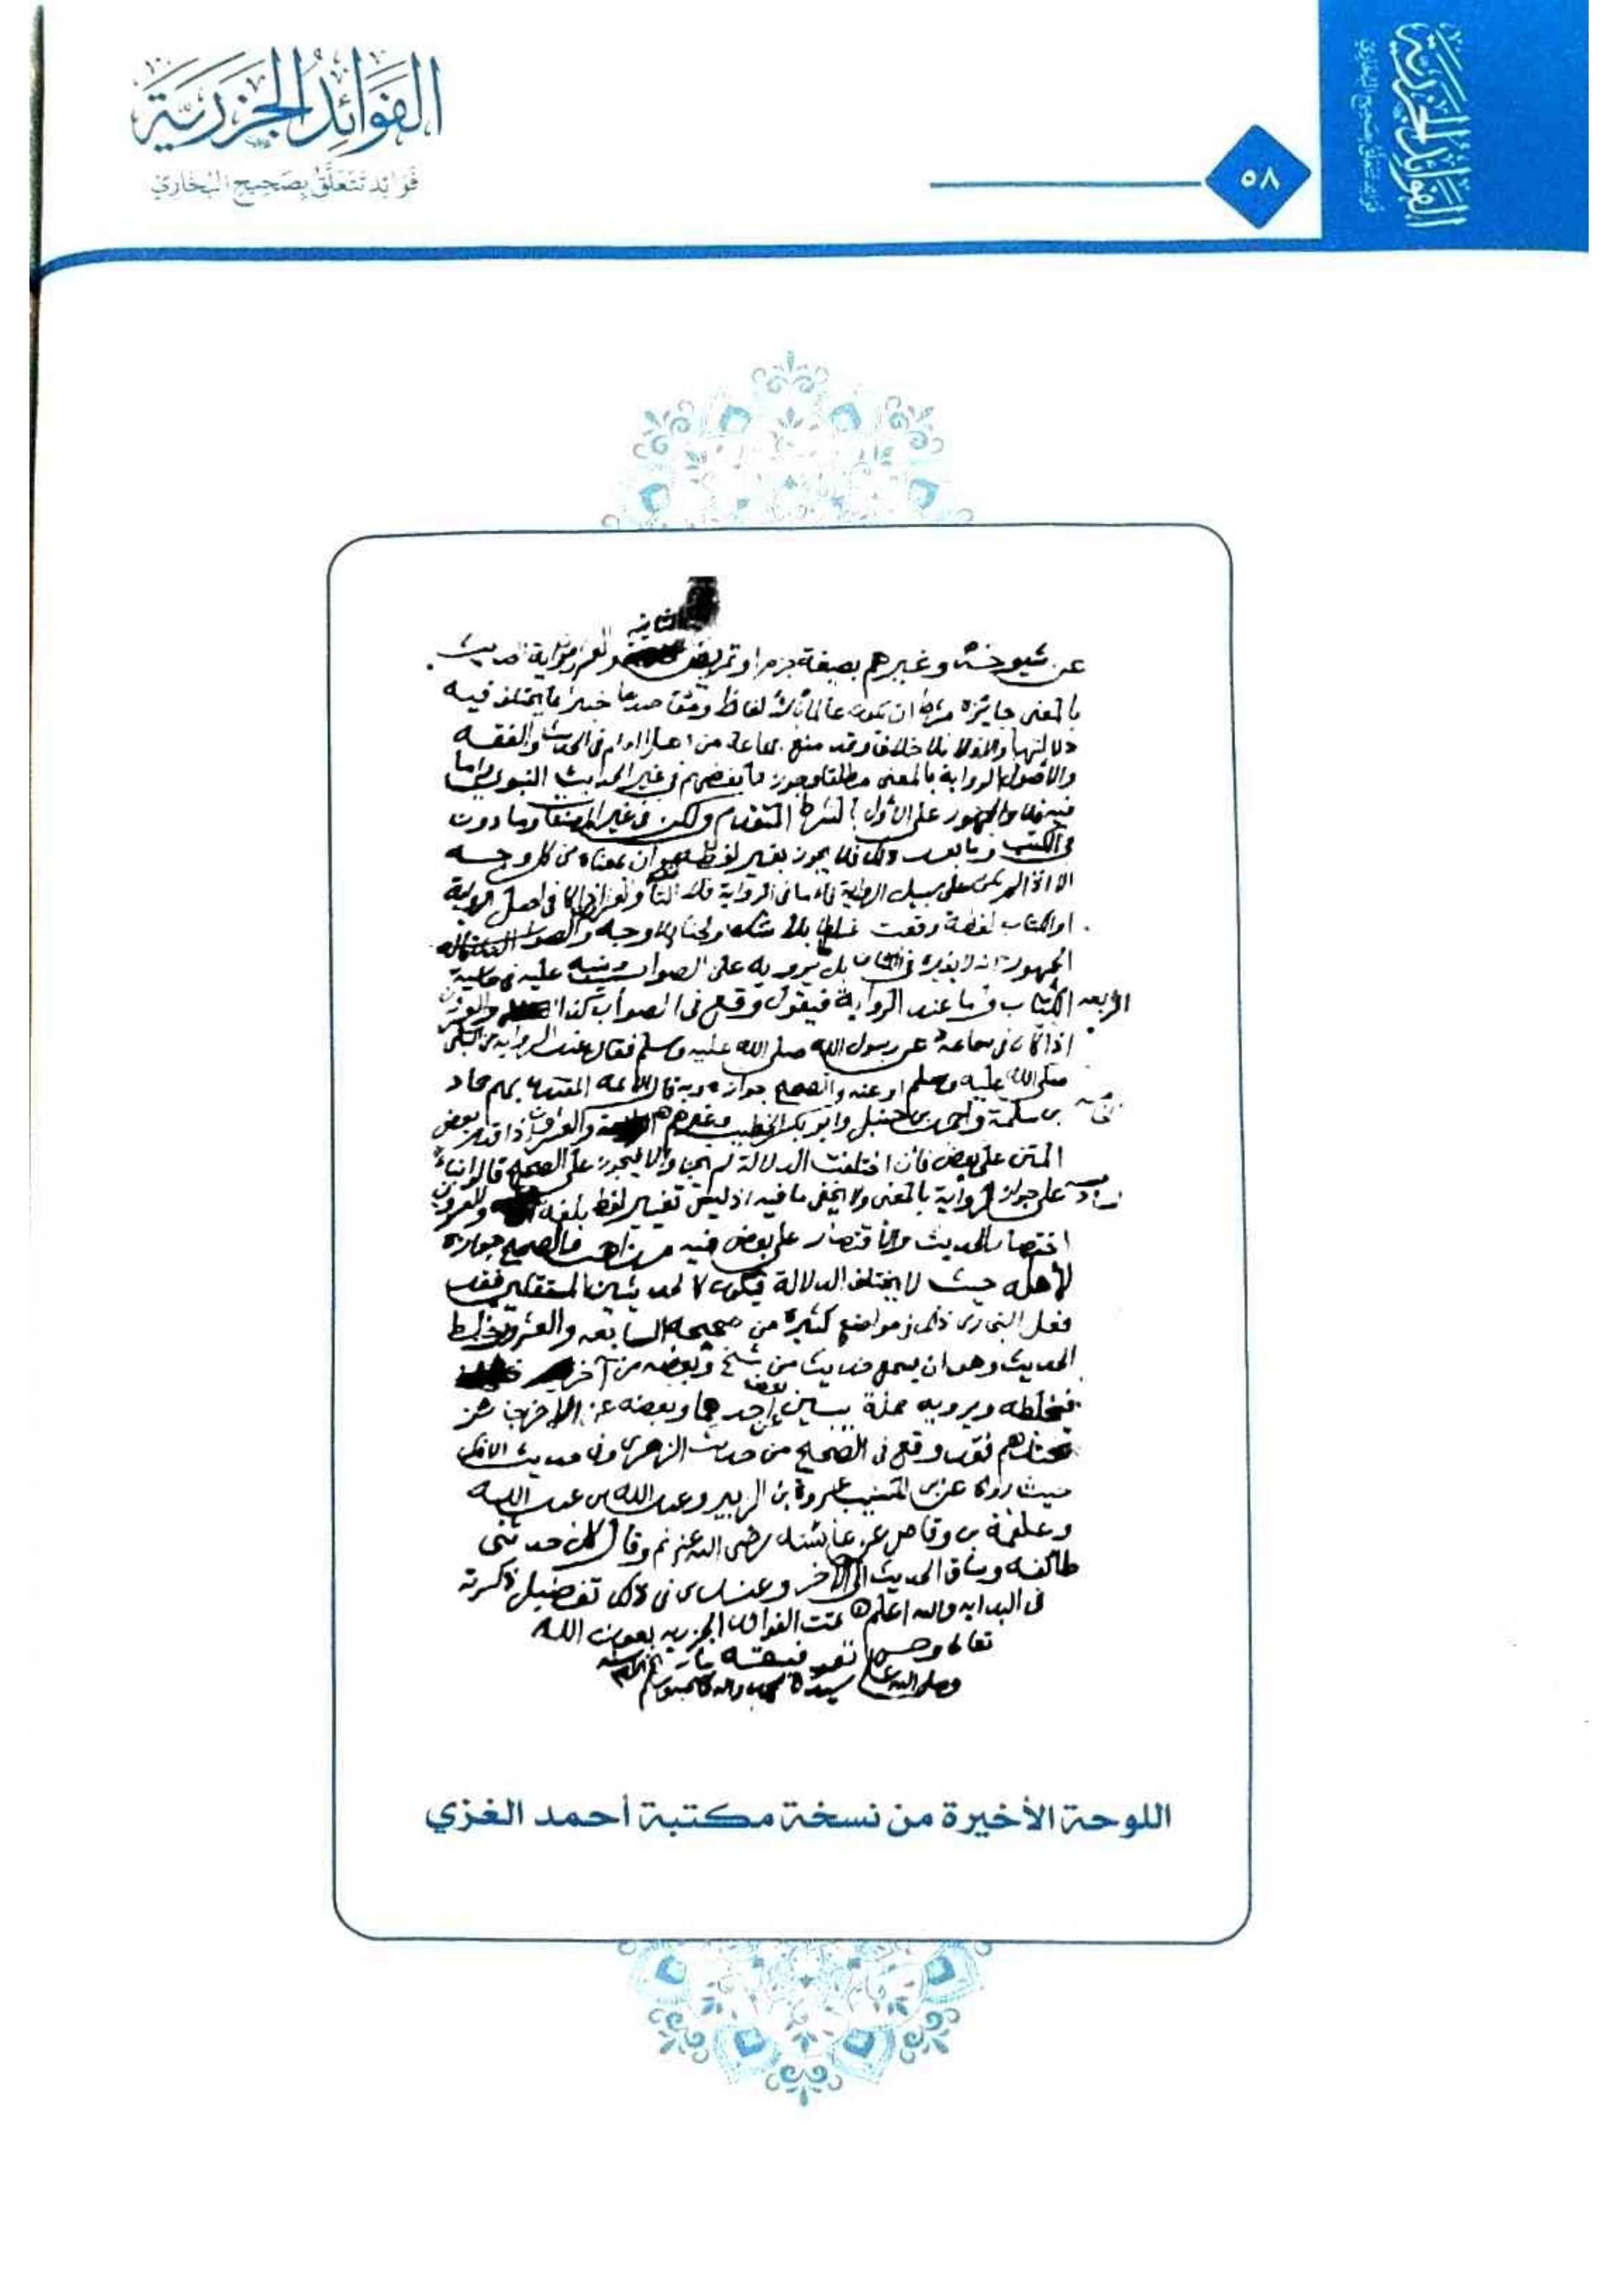 الفوائد الجزرية
فوائد تتعلق بصحيح البخاري
٥٨
الفَوَائِدُ الجَزَرِيَّة
فَوَائِد تَتَعَلَّقُ بِصَحِيحِ البُخَارِيّ
الثانية
عن شيوخه وغيرهم بصيغة جزم او تمريض والعشرون رواية الحديث
بالمعنى جايزة بشرط ان يكون عالما بالالفاظ خبيرا بما يختلف فيه
دلالتها والا فلا بلا خلاف وقد منع جماعة من في الحديث والفقه
والاصول الرواية بالمعنى مطلقا وجوزها بعضهم في غير الحديث النبوي واما
فيه فلا والجمهور على الاول بالشرط المتقدم ولكن في غير المصنفات وما دون
في الكتب وما بعد ذلك فلا يجوز بغير لفظه وان بمعناه من كل وجه
في اصل الرواية
او الكتاب لفظة وقعت غلطا بلا شك ولحنا بلا وجه والصواب
الجمهور انه لا يغيره في الكتاب بل يرويه على الصواب وينبه عليه في حاشية
الرابعة الكتاب واما عند الرواية فيقول وقع في الصواب كذا والعشرون
اذا كان في سماعه عن رسول الله صلى الله عليه وسلم فقال عند الرواية عن النبي
صلى الله عليه وسلم او عنه والصحيح جوازه وبه قال الائمة المقتدى بهم حماد
بن سلمة واحمد بن حنبل وابو بكر الخطيب وغيرهم والعشرون اذا قدم بعض
المتن على بعض فان اختلفت الدلالة لم يجز والا فيجوز على الصحيح قالوا بناء
على جواز الرواية بالمعنى ولا يخفى ما فيه اذ ليس تغيير لفظ بلفظ والعشرون
اختصار الحديث والاقتصار على بعض فيه مذاهب فالصحيح جوازه
لاهله حيث لا يختلف الدلالة فيكون كالحديثين المستقلين فقد
فعل البخاري ذلك في مواضع كثيرة من صحيحه السابعة والعشرون خلط
الحديث وهو ان يسمع حديث من شيخ وبعضه من آخر
فيخلطه ويرويه جملة يبين عن احدهما وبعضه عن الاخر جائز
عندهم فقد وقع في الصحيح من حديث الزهري في حديث الافك
حيث رواه عن بن المسيب عروة بن الزبير وعبد الله بن عبد الله
وعلقمة بن وقاص عن عائشة رضي الله عنهم وقال كل حدثني
طائفة وساق الحديث الى الاخر وعندي في ذلك تفصيل ذكرته
في البداية والله اعلم تمت الفوائد الجزرية بعون الله
تعالى وحسن توفيقه
وصلى الله على سيدنا محمد واله وصحبه وسلم
اللوحة الأخيرة من نسخة مكتبة أحمد الغزي